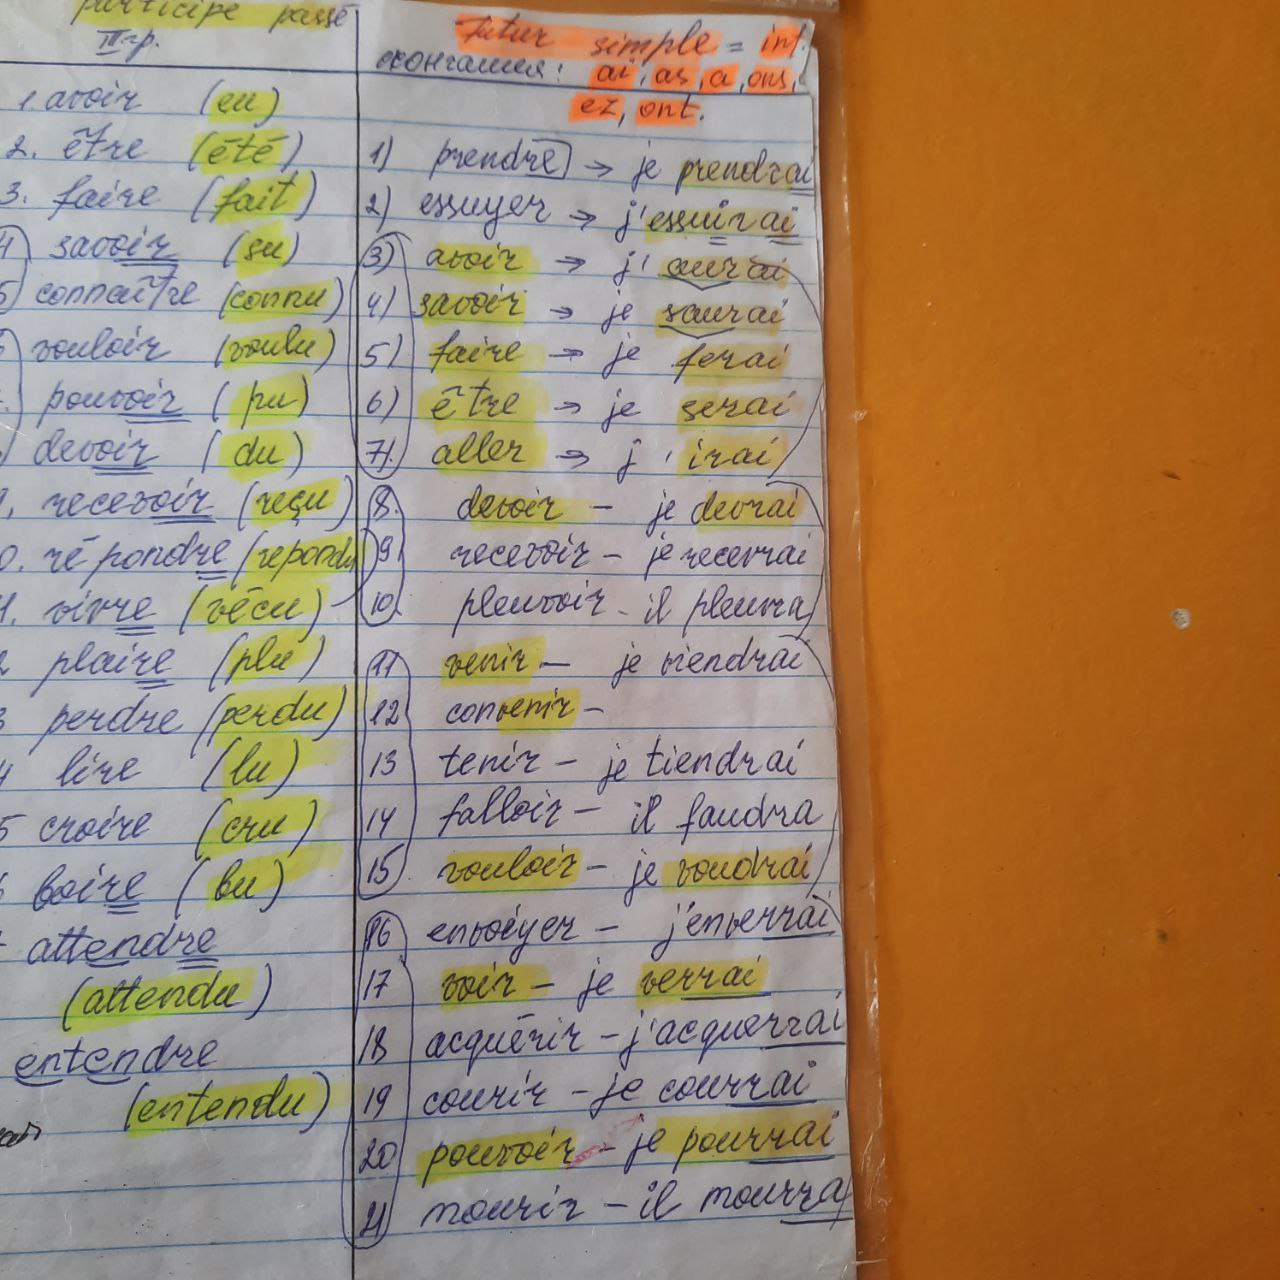 participe passé
III гр.
1. avoir (eu)
2. être (été)
3. faire (fait)
4 savoir (su)
5) connaître (connu)
vouloir (voulu)
pouvoir (pu)
devoir (du)
recevoir (reçu)
0. répondre (repondu
1. vivre (vécu)
2 plaire (plu)
3 perdre (perdu)
4 lire (lu)
5 croire (cru)
boire (bu)
attendre
(attendu)
entendre
(entendu)
futur simple = inf.
окончания: ai, as, a, ons,
ez, ont.
1) prendre → je prendrai
2) essuyer → j'essuirai
3) avoir → j'aurai
4) savoir → je saurai
5) faire → je ferai
6) être → je serai
7). aller → j'irai
8. devoir – je devrai
9 recevoir – je recevrai
10. pleuvoir – il pleuvra
11 venir – je viendrai
12 convenir –
13 tenir – je tiendrai
14 falloir – il faudra
15. vouloir – je voudrai
16 envoiyer – j'enverrai
17 voir – je verrai
18 acquérir – j'acquerrai
19 courir – je courrai
20 pouvoir – je pourrai
21 mourir – il mourra